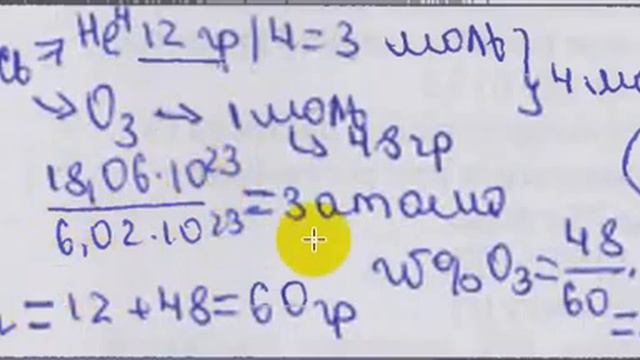 He⁴ 12 гр/4=3 моль}
→ O₃ → 1 моль } 4 мо
↳ 48 гр
18,06·10²³
/ 6,02·10²³ = 3 атома
w%O₃=48/60·
=12+48=60гр =